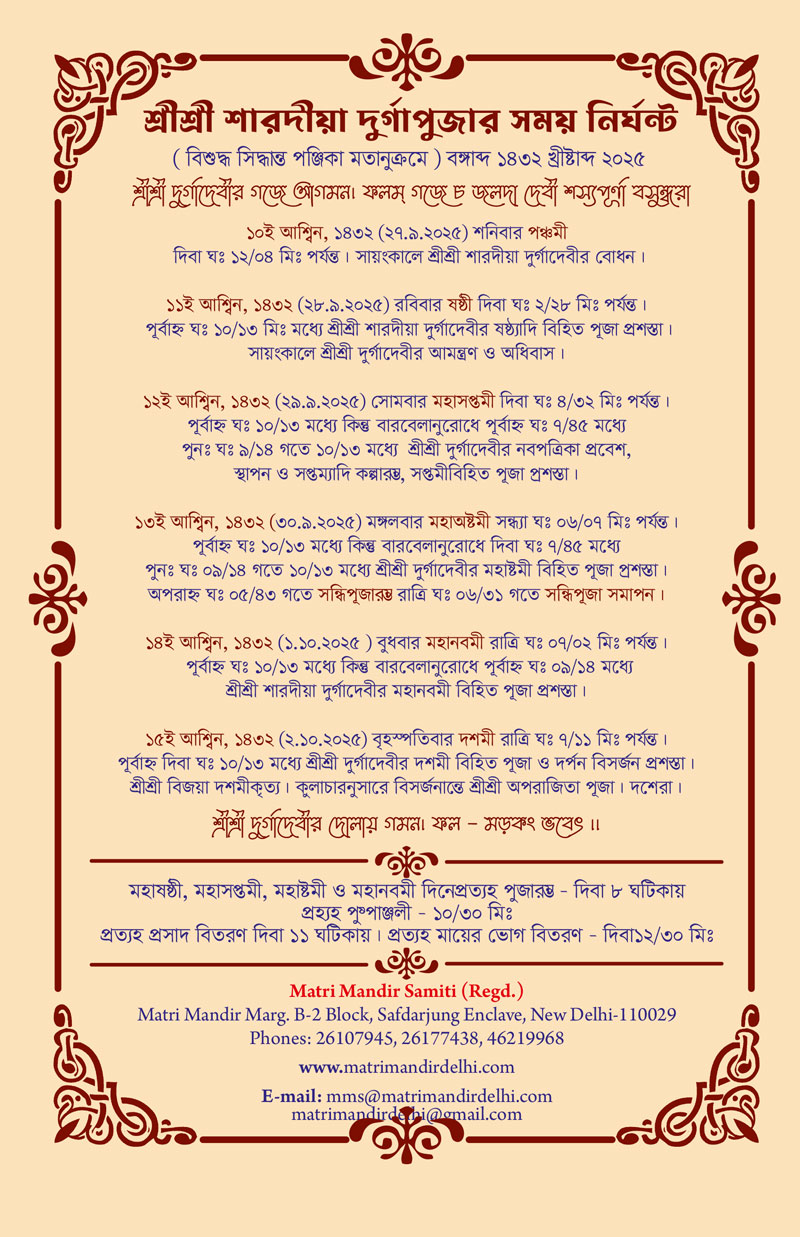 শ্রীশ্রী শারদীয়া দুর্গাপুজার সময় নির্ঘন্ট
( বিশুদ্ধ সিদ্ধান্ত পঞ্জিকা মতানুক্রমে ) বঙ্গাব্দ ১৪৩২ খ্রীষ্টাব্দ ২০২৫
শ্রীশ্রী দুর্গাদেবীর গজে আগমন। ফলম্ গজে চ জলদা দেবী শস্যপূর্ণা বসুন্ধরা
১০ই আশ্বিন, ১৪৩২ (২৭.৯.২০২৫) শনিবার পঞ্চমী
দিবা ঘঃ ১২/০৪ মিঃ পর্যন্ত। সায়ংকালে শ্রীশ্রী শারদীয়া দুর্গাদেবীর বোধন।
১১ই আশ্বিন, ১৪৩২ (২৮.৯.২০২৫) রবিবার ষষ্ঠী দিবা ঘঃ ২/২৮ মিঃ পর্যন্ত।
পূর্বাহ্ন ঘঃ ১০/১৩ মিঃ মধ্যে শ্রীশ্রী শারদীয়া দুর্গাদেবীর ষষ্ঠ্যাদি বিহিত পূজা প্রশস্তা।
সায়ংকালে শ্রীশ্রী দুর্গাদেবীর আমন্ত্রণ ও অধিবাস।
১২ই আশ্বিন, ১৪৩২ (২৯.৯.২০২৫) সোমবার মহাসপ্তমী দিবা ঘঃ ৪/৩২ মিঃ পর্যন্ত।
পূর্বাহ্ন ঘঃ ১০/১৩ মধ্যে কিন্তু বারবেলানুরোধে পূর্বাহ্ন ঘঃ ৭/৪৫ মধ্যে
পুনঃ ঘঃ ৯/১৪ গতে ১০/১৩ মধ্যে শ্রীশ্রী দুর্গাদেবীর নবপত্রিকা প্রবেশ,
স্থাপন ও সপ্তম্যাদি কল্পারম্ভ, সপ্তমীবিহিত পূজা প্রশস্তা।
১৩ই আশ্বিন, ১৪৩২ (৩০.৯.২০২৫) মঙ্গলবার মহাঅষ্টমী সন্ধ্যা ঘঃ ০৬/০৭ মিঃ পর্যন্ত।
পূর্বাহ্ন ঘঃ ১০/১৩ মধ্যে কিন্তু বারবেলানুরোধে দিবা ঘঃ ৭/৪৫ মধ্যে
পুনঃ ঘঃ ০৯/১৪ গতে ১০/১৩ মধ্যে শ্রীশ্রী দুর্গাদেবীর মহাষ্টমী বিহিত পূজা প্রশস্তা।
অপরাহ্ন ঘঃ ০৫/৪৩ গতে সন্ধিপূজারম্ভ রাত্রি ঘঃ ০৬/৩১ গতে সন্ধিপূজা সমাপন।
১৪ই আশ্বিন, ১৪৩২ (১.১০.২০২৫ ) বুধবার মহানবমী রাত্রি ঘঃ ০৭/০২ মিঃ পর্যন্ত।
পূর্বাহ্ন ঘঃ ১০/১৩ মধ্যে কিন্তু বারবেলানুরোধে পূর্বাহ্ন ঘঃ ০৯/১৪ মধ্যে
শ্রীশ্রী শারদীয়া দুর্গাদেবীর মহানবমী বিহিত পূজা প্রশস্তা।
১৫ই আশ্বিন, ১৪৩২ (২.১০.২০২৫) বৃহস্পতিবার দশমী রাত্রি ঘঃ ৭/১১ মিঃ পর্যন্ত।
পূর্বাহ্ন দিবা ঘঃ ১০/১৩ মধ্যে শ্রীশ্রী দুর্গাদেবীর দশমী বিহিত পূজা ও দর্পন বিসর্জন প্রশস্তা।
শ্রীশ্রী বিজয়া দশমীকৃত্য। কুলাচারনুসারে বিসর্জনান্তে শ্রীশ্রী অপরাজিতা পূজা। দশেরা।
শ্রীশ্রী দুর্গাদেবীর দোলায় গমন। ফল – মড়কং ভবেৎ ।।
মহাষষ্ঠী, মহাসপ্তমী, মহাষ্টমী ও মহানবমী দিনেপ্রত্যহ পুজারম্ভ - দিবা ৮ ঘটিকায়
প্রহ্যহ পুষ্পাঞ্জলী - ১০/৩০ মিঃ
প্রত্যহ প্রসাদ বিতরণ দিবা ১১ ঘটিকায়। প্রত্যহ মায়ের ভোগ বিতরণ - দিবা১২/৩০ মিঃ
Matri Mandir Samiti (Regd.)
Matri Mandir Marg. B-2 Block, Safdarjung Enclave, New Delhi-110029
Phones: 26107945, 26177438, 46219968
www.matrimandirdelhi.com
E-mail: mms@matrimandirdelhi.com
matrimandirdelhi@gmail.com